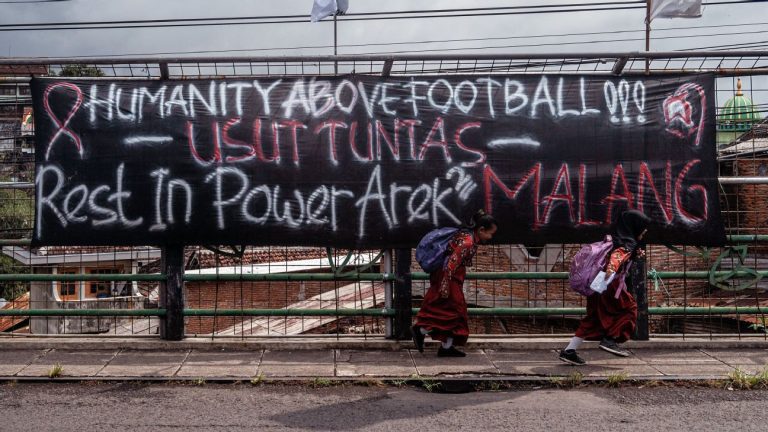 HUMANITY ABOVE FOOTBALL!!!
– USUT TUNTAS –
Rest In Power Arek² MALANG